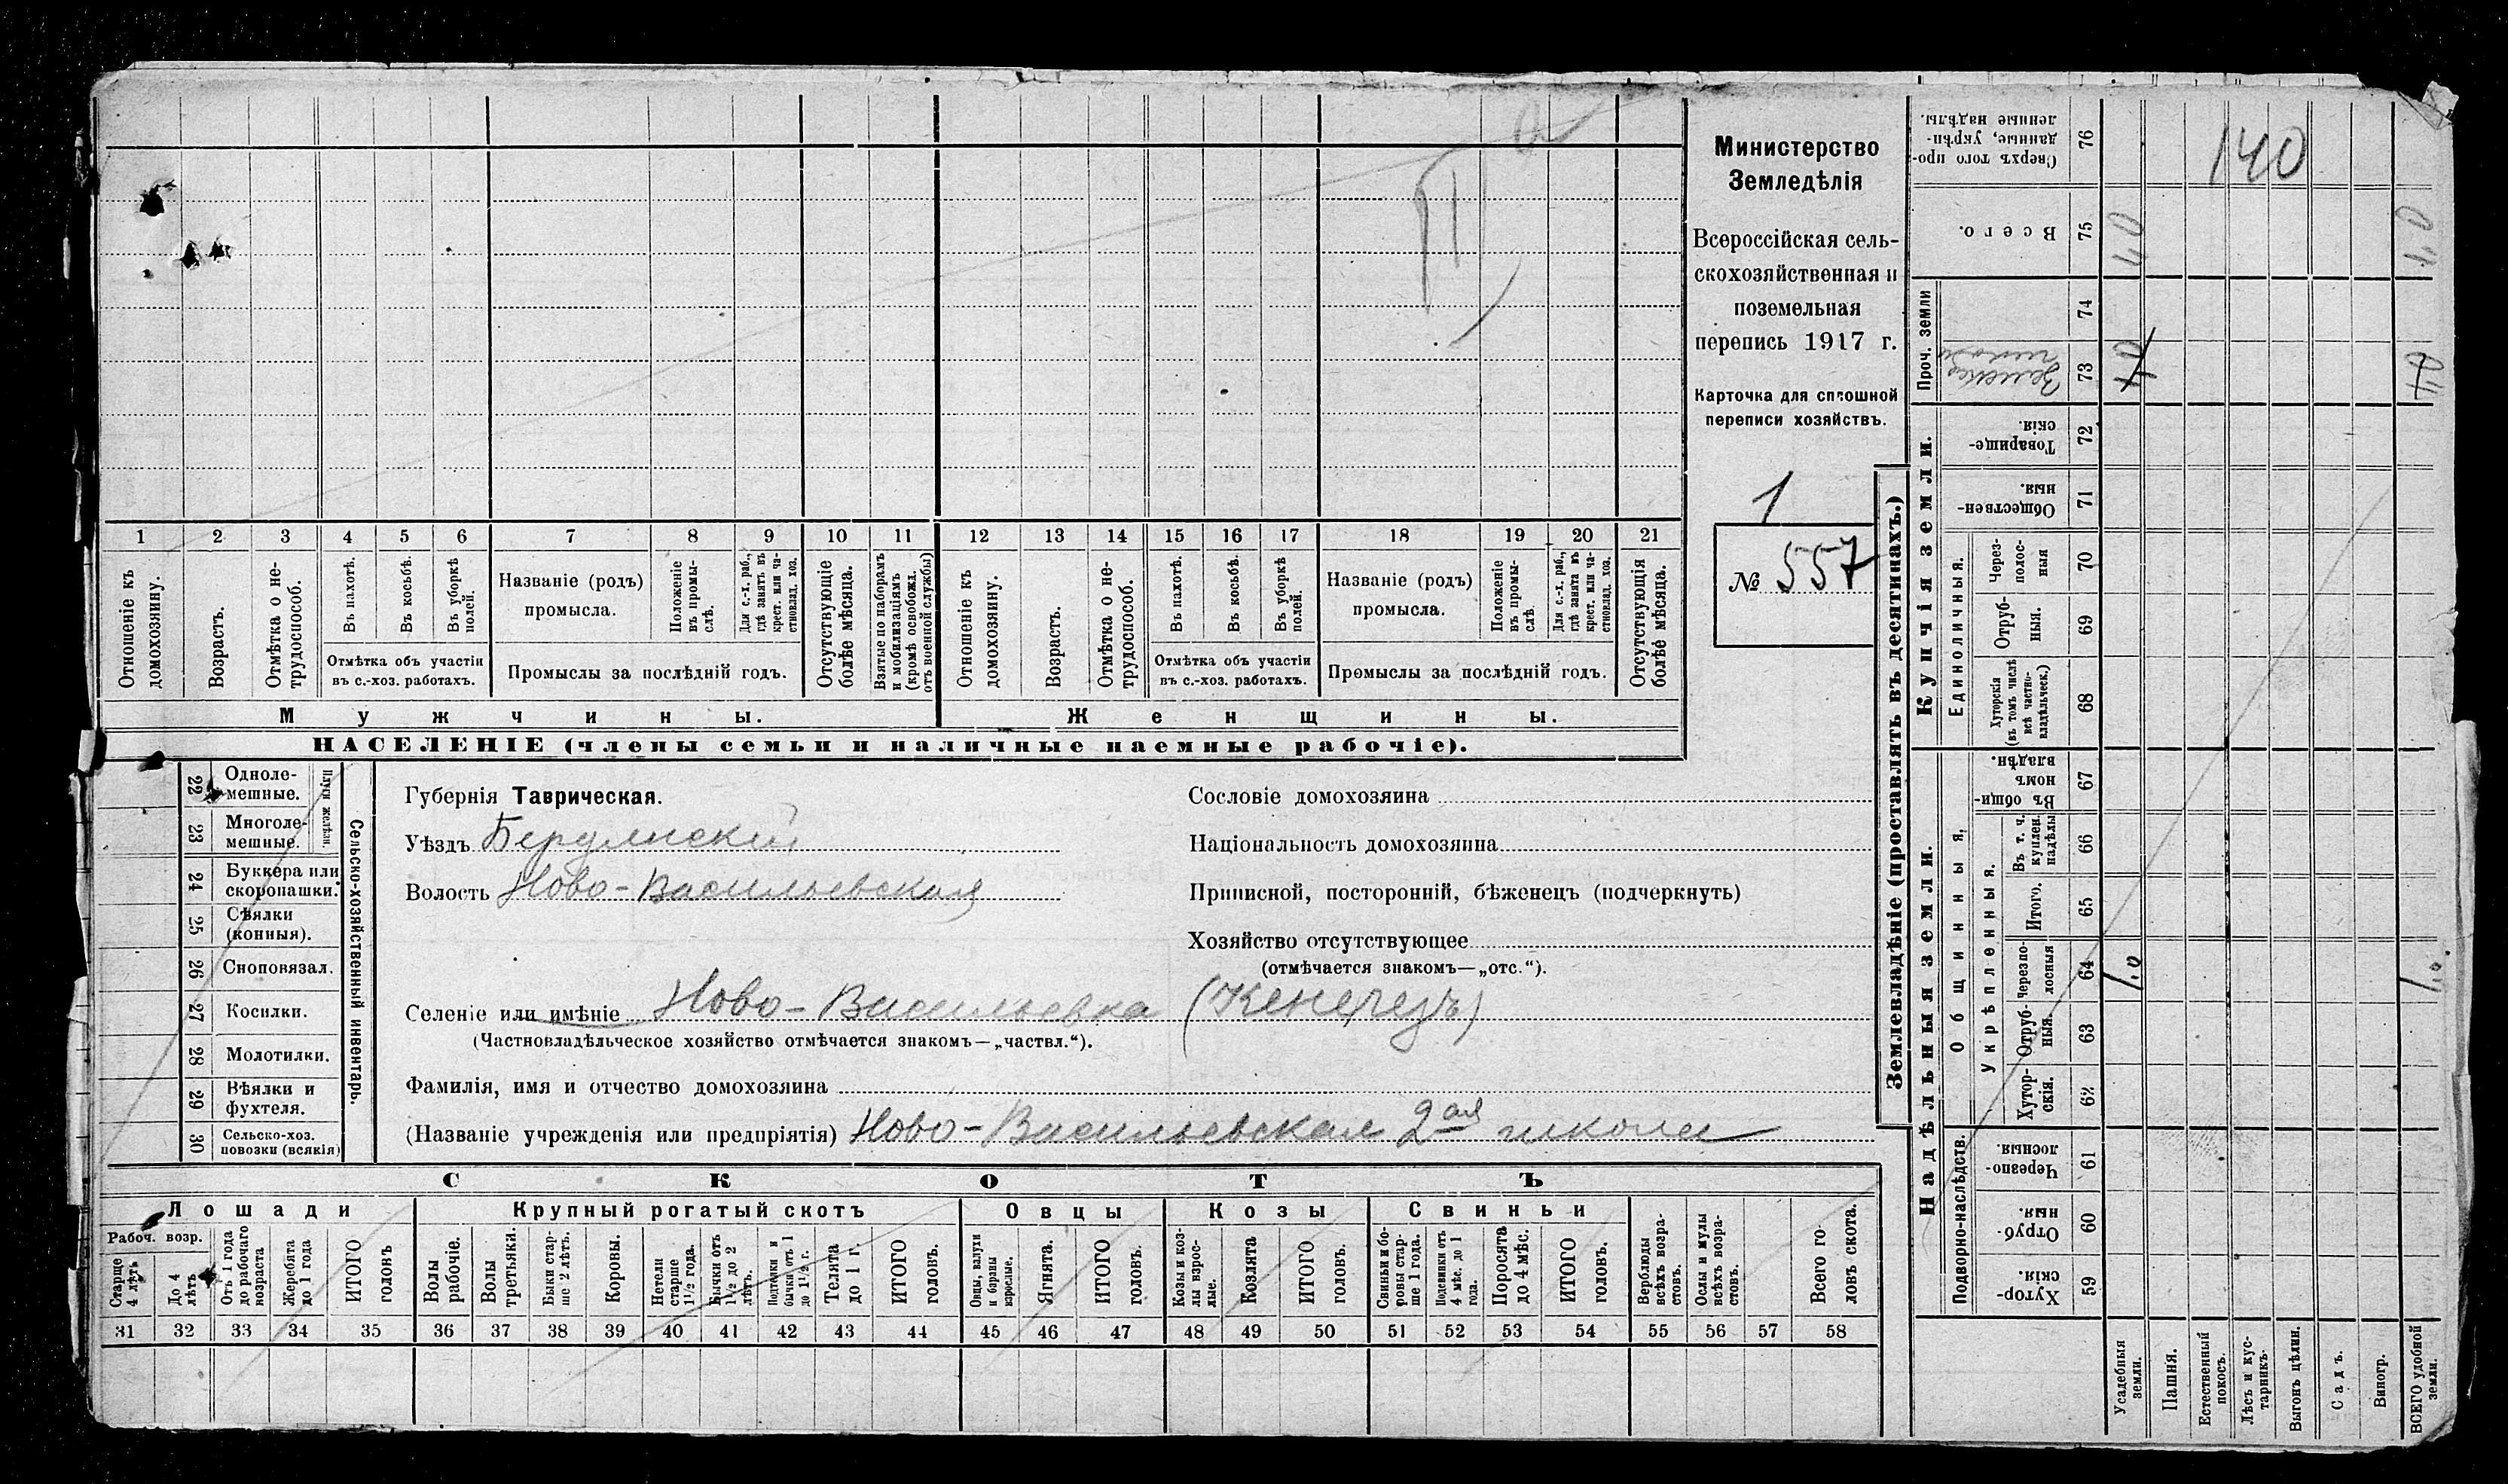 Министерство
Земледѣлія
Всероссійская сель-
скохозяйственная и
поземельная
перепись 1917 г.
Карточка для сплошной
переписи хозяйствъ.
1
№ 557
1 2 3 4 5 6 7 8 9 10 11 12 13 14 15 16 17 18 19 20 21
Отношеніе къ домохозяину.
Возрастъ.
Отмѣтка о не-трудоспособ.
Въ пахотѣ.
Въ косьбѣ.
Въ уборкѣ полей.
Отмѣтка объ участіи
въ с.-хоз. работахъ.
Названіе (родъ)
промысла.
Положеніе въ промы-слѣ.
Для с.-х. раб., гдѣ занятъ въ крест. или ча-стновлад. хоз.
Промыслы за послѣдній годъ.
Отсутствующіе болѣе мѣсяца.
Взятые по наборамъ и мобилизаціямъ (кромѣ освобожд. отъ военной службы)
Отношеніе къ домохозяину.
Возрастъ.
Отмѣтка о не-трудоспособ.
Въ пахотѣ.
Въ косьбѣ.
Въ уборкѣ полей.
Отмѣтка объ участіи
въ с.-хоз. работахъ.
Названіе (родъ)
промысла.
Положеніе въ промы-слѣ.
Для с.-х. раб., гдѣ занята въ крест. или ча-стновлад. хоз.
Промыслы за послѣдній годъ.
Отсутствующія болѣе мѣсяца.
Мужчины. Женщины.
НАСЕЛЕНІЕ (члены семьи и наличные наемные рабочіе).
Сельско-хозяйственный инвентарь.
22 Одноле-мешные.
23 Многоле-мешные.
24 Буккера или скоропашки.
25 Сѣялки (конныя).
26 Сноповязал.
27 Косилки.
28 Молотилки.
29 Вѣялки и фухтеля.
30 Сельско-хоз. повозки (всякія)
Губернія Таврическая.
Уѣздъ Бердянскій
Волость Ново-Васильевская
Сословіе домохозяина
Національность домохозяина
Приписной, посторонній, бѣженецъ (подчеркнуть)
Хозяйство отсутствующее
(отмѣчается знакомъ—„отс.“).
Селеніе или имѣніе Ново-Васильевка (Кенегезъ)
(Частновладѣльческое хозяйство отмѣчается знакомъ—„частвл.“).
Фамилія, имя и отчество домохозяина
(Названіе учрежденія или предпріятія) Ново-Васильевская 2ая школа
СКОТЪ
Лошади Крупный рогатый скотъ Овцы Козы Свиньи
Рабоч. возр.
Старше 4 лѣтъ
До 4 лѣтъ
Отъ 1 года до рабочаго возраста
Жеребята до 1 года
ИТОГО головъ
Волы рабочіе.
Волы третьяки.
Быки стар-ше 2 лѣтъ.
Коровы.
Нетели старше 1½ года.
Бычки отъ 1½ до 2 лѣтъ.
Подтелки и бычки отъ 1 до 1½ г.
Телята до 1 г.
ИТОГО головъ.
Овцы, валухи и бараны взрослые.
Ягнята.
ИТОГО головъ.
Козы и коз-лы взрос-лые.
Козлята
ИТОГО головъ.
Свиньи и бо-ровы стар-ше 1 года.
Подсвинки отъ 4 мѣс. до 1 года.
Поросята до 4 мѣс.
ИТОГО головъ.
Верблюды всѣхъ возра-стовъ.
Ослы и мулы всѣхъ возра-стовъ.
Всего го-ловъ скота.
31 32 33 34 35 36 37 38 39 40 41 42 43 44 45 46 47 48 49 50 51 52 53 54 55 56 57 58
Землевладѣніе (проставлять въ десятинахъ.)
Надѣльныя земли.
Купчія земли.
Проч. земли
Подворно-наслѣдств.
Общинныя.
Укрѣпленныя.
Единоличныя.
76 Сверхъ того про-данные, укрѣп-ленные надѣлы.
75 Всего. 4,0 4,0
74
73
72 Товарище-скія.
71 Обществен-ныя.
70 Через-полос-ныя
69 Отруб-ныя.
68 Хуторскія (въ томъ числѣ всѣ частно-владѣльческ.)
67 Въ общи-номъ владѣн.
66 Въ т. ч. куплен. надѣлы
65 Итого.
64 Черезпо-лосныя 1,0 1,0.
63 Отруб-ныя.
62 Хутор-скія.
61 Черезпо-лосныя
60 Отруб-ныя.
59 Хутор-скія.
140
Усадебныя земли.
Пашня.
Естественный покосъ.
Лѣсъ и кус-тарникъ.
Выгонъ цѣлин.
Садъ.
Виногр.
ВСЕГО удобной земли.